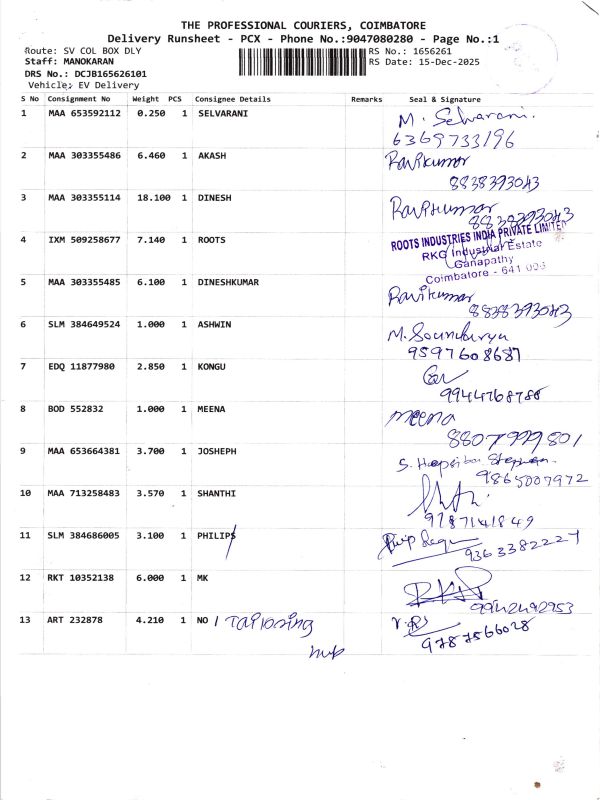 THE PROFESSIONAL COURIERS, COIMBATORE
Delivery Runsheet - PCX - Phone No.:9047080280 - Page No.:1
Route: SV COL BOX DLY
Staff: MANOKARAN
DRS No.: DCJB165626101
Vehicle: EV Delivery
RS No.: 1656261
RS Date: 15-Dec-2025
S No Consignment No Weight PCS Consignee Details Remarks Seal & Signature
1 MAA 653592112 0.250 1 SELVARANI M. Selvarani.
6369733196
2 MAA 303355486 6.460 1 AKASH Ravikumar
8838393043
3 MAA 303355114 18.100 1 DINESH Ravikumar
8838393043
4 IXM 509258677 7.140 1 ROOTS ROOTS INDUSTRIES INDIA PRIVATE LIMITED
RKG Industrial Estate
Ganapathy
Coimbatore - 641 006
5 MAA 303355485 6.100 1 DINESHKUMAR Ravikumar
8838393043
6 SLM 384649524 1.000 1 ASHWIN M. Soundarya
9597608687
7 EDQ 11877980 2.850 1 KONGU
9944768788
8 BOD 552832 1.000 1 MEENA meena
8807999801
9 MAA 653664381 3.700 1 JOSHEPH S. Stephen.
9865007972
10 MAA 713258483 3.570 1 SHANTHI
9787141849
11 SLM 384686005 3.100 1 PHILIPS
9363382227
12 RKT 10352138 6.000 1 MK
9942492953
13 ART 232878 4.210 1 NO / Tailoring
9787566028